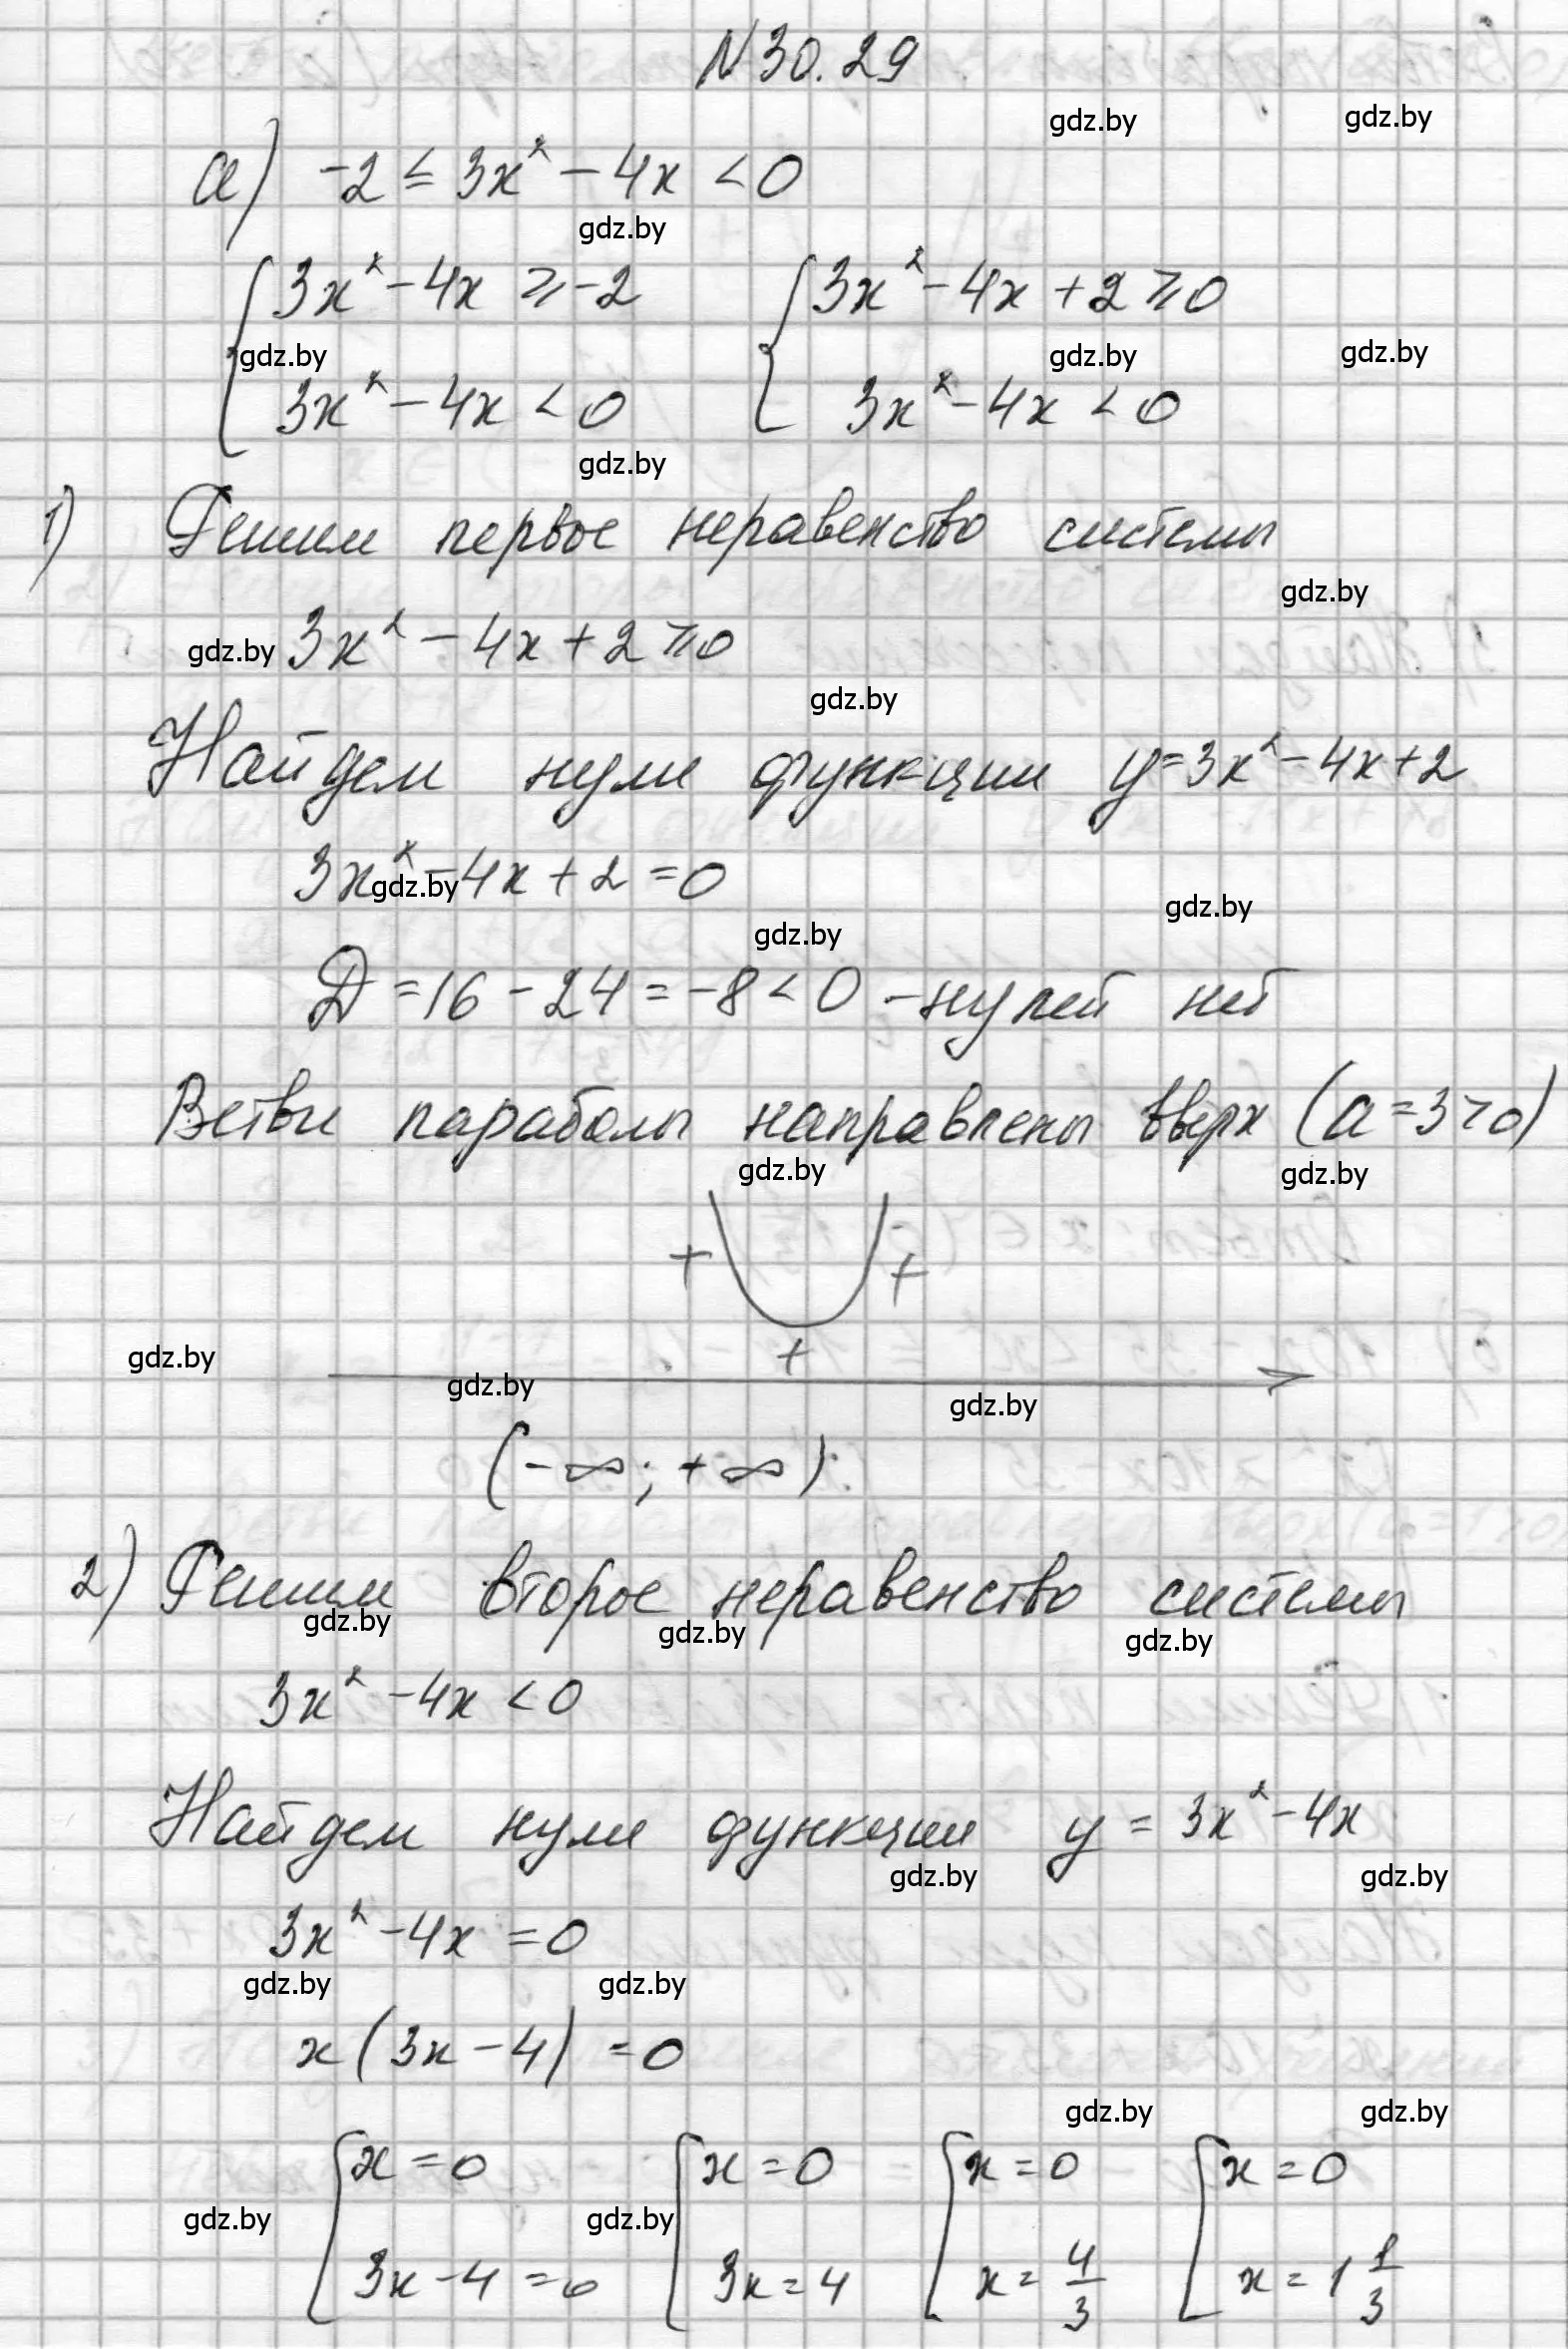 N 30.29
gdz.by gdz.by
а) -2 ≤ 3x² - 4x < 0
gdz.by
{3x² - 4x ≥ -2 {3x² - 4x + 2 ≥ 0
gdz.by gdz.by gdz.by
3x² - 4x < 0 3x² - 4x < 0
gdz.by
1) Решим первое неравенство системы
gdz.by
gdz.by 3x² - 4x + 2 ≥ 0
gdz.by
Найдем нули функции y = 3x² - 4x + 2
3x² - 4x + 2 = 0
gdz.by gdz.by
gdz.by
D = 16 - 24 = -8 < 0 - нулей нет
Ветви параболы направлены вверх (a = 3 > 0)
gdz.by gdz.by
+ +
+
gdz.by gdz.by gdz.by
(-∞; +∞).
2) Решим второе неравенство системы
gdz.by gdz.by gdz.by
3x² - 4x < 0
Найдем нули функции y = 3x² - 4x
gdz.by gdz.by
3x² - 4x = 0
gdz.by gdz.by
x(3x - 4) = 0
gdz.by gdz.by
[x = 0 [x = 0 [x = 0 [x = 0
gdz.by gdz.by
3x - 4 = 0 3x = 4 x = 4/3 x = 1 1/3